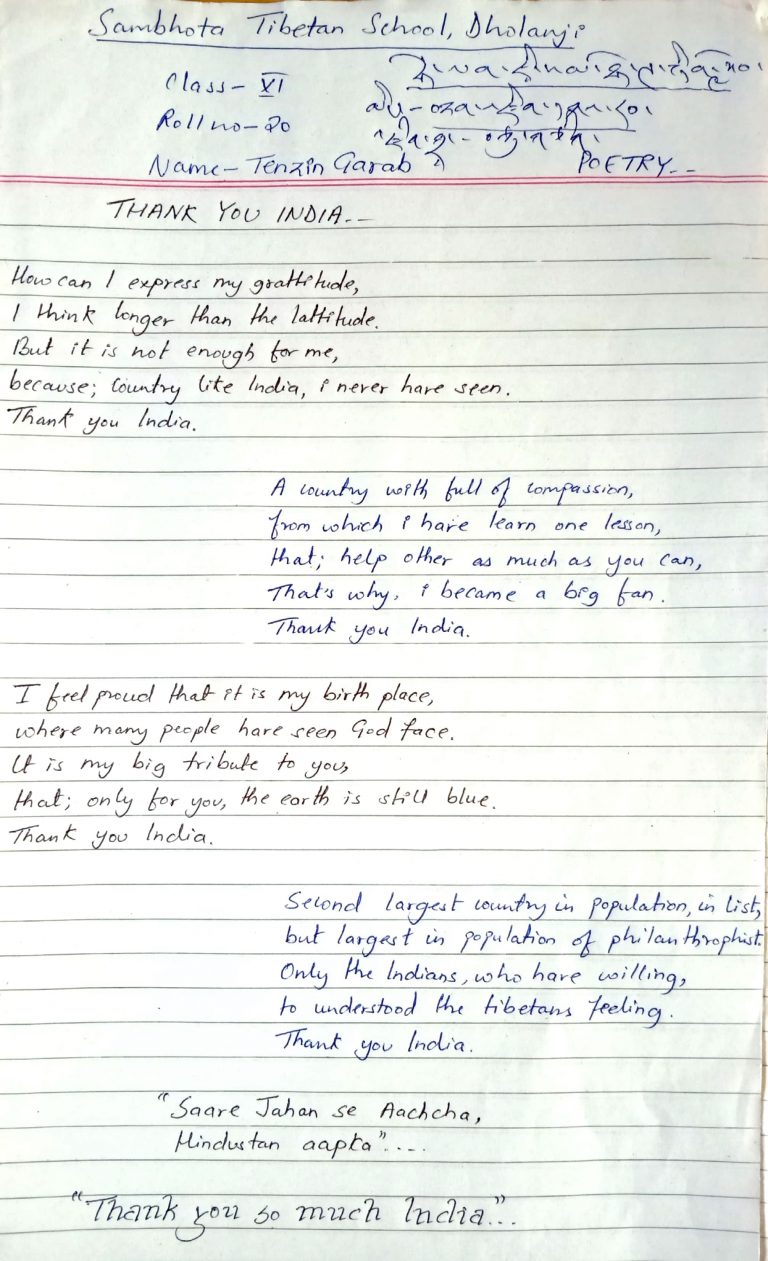 Sambhota Tibetan School, Dholanji
Class- VI
Roll no- 20
Name- Tenzin Garab
POETRY..
THANK YOU INDIA...
How can I express my grattitude,
I think longer than the lattitude.
But it is not enough for me,
because; Country like India, i never have seen.
Thank you India.
A country with full of compassion,
from which i have learn one lesson,
that; help other as much as you can,
That's why, i became a big fan.
Thank you India.
I feel proud that it is my birth place,
where many people have seen God face.
It is my big tribute to you,
that; only for you, the earth is still blue.
Thank you India.
Second largest country in population, in list,
but largest in population of philanthrophist.
Only the Indians, who have willing,
to understood the tibetans feeling.
Thank you India.
"Saare Jahan se Aachcha,
Hindustan aapka"....
"Thank you so much India"...